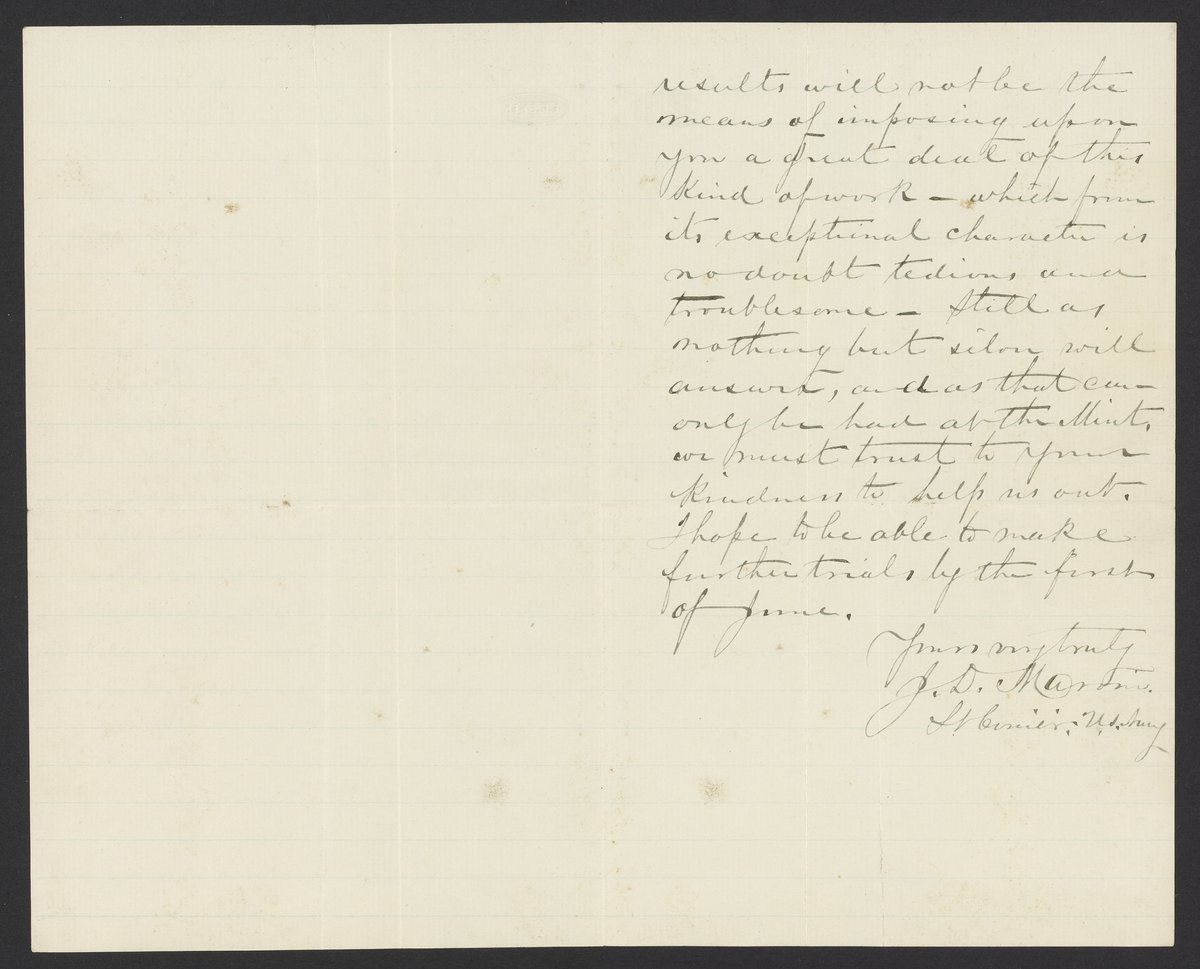 results will not be the
means of imposing upon
you a great deal of this
kind of work – which from
its exceptional character is
no doubt tedious and
troublesome – Still as
nothing but silver will
answer, and as that can
only be had at the Mint,
we must trust to your
kindness to help us out.
I hope to be able to make
further trials by the first
of June.
Yours very truly
J. D. Marvin.
Lt Comdr: U.S. Navy